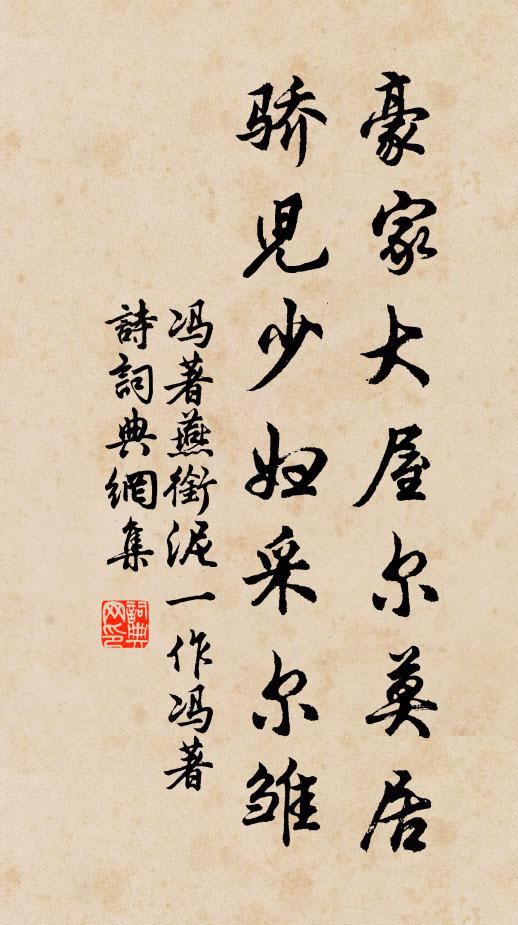 豪家大屋尔莫居
骄児少妇采尔雏
冯著燕衔泥一作冯著
詩詞典網集
詞典网印